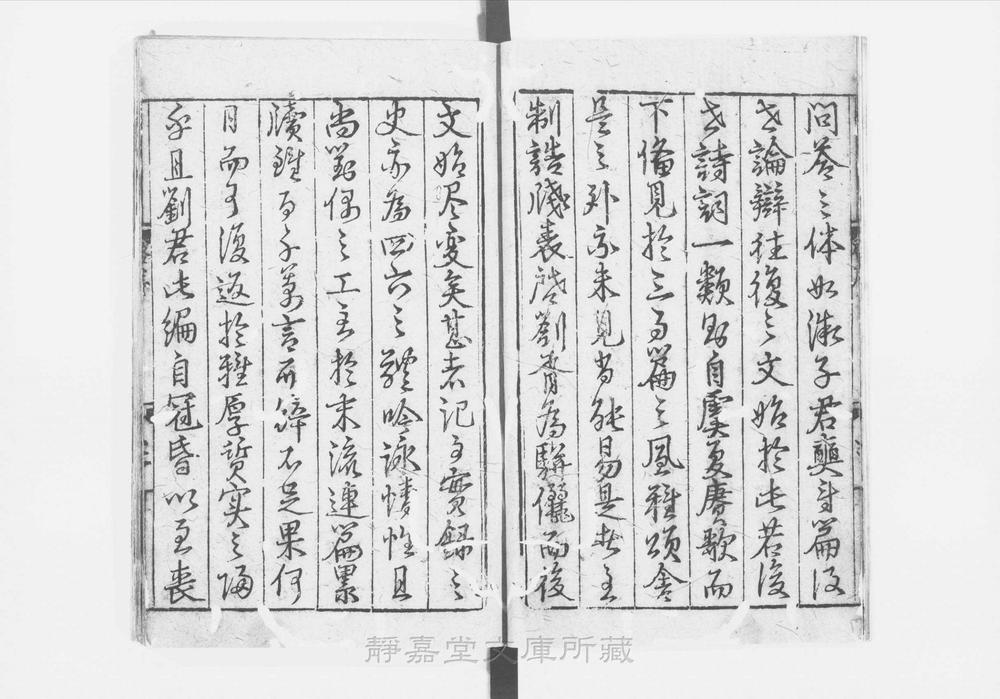 問荅之体如微子君奭等篇後
世論辯往復之文始於此若後
世詩詞一類則自虞夏賡歌而
下備見於三百篇之風雅頌舍
是之外亦未見有能易是者至
制誥牋表啓劄胥為駢儷而後
文始尽变矣甚者記事實録之
史亦為四六之體吟詠情性且
尚對偶之工至於末流連篇累
牘雖百千萬言而辭不足果何
日而可復返於雅厚質实之歸
乎且劉君此編自冠昏以至喪
靜嘉堂文庫所藏